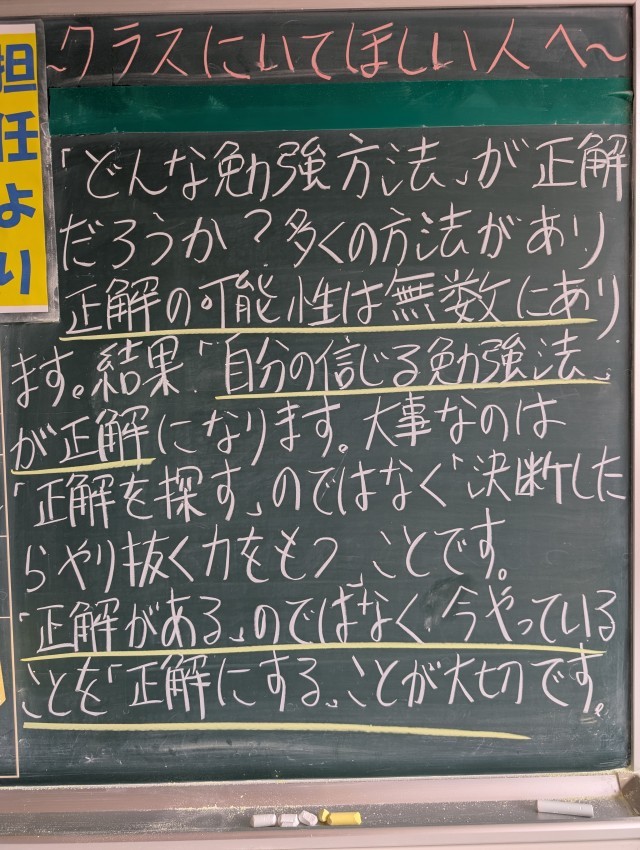 担任より
～クラスにいてほしい人へ～
「どんな勉強方法」が正解
だろうか？多くの方法があり
正解の可能性は無数にあり
ます。結果「自分の信じる勉強法」
が正解になります。大事なのは
「正解を探す」のではなく「決断した
らやり抜く力をもつ」ことです。
「正解がある」のではなく、今やっている
ことを「正解にする」ことが大切です。